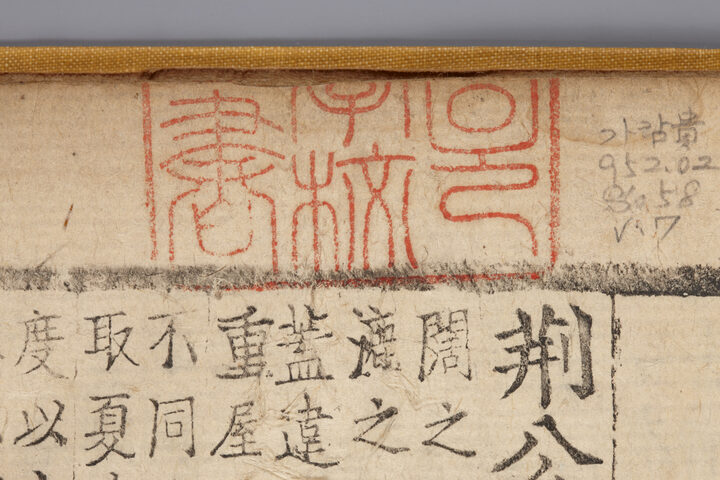 邑
校
書
가람貴
952.02
v.7
荊公
闊之
之
蓋違
重屋
不同
取夏
度以